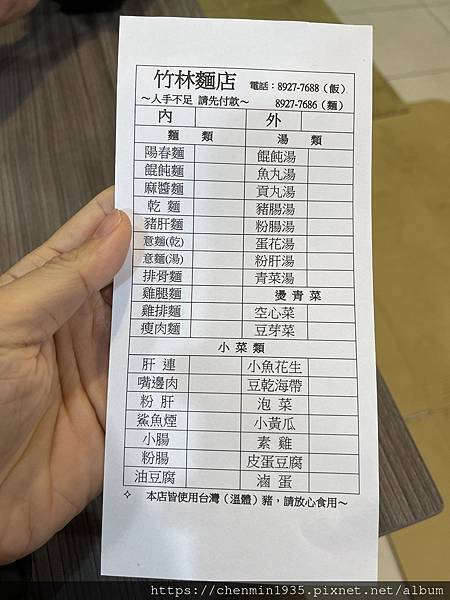 竹林麵店 電話：8927-7688（飯）
～人手不足 請先付款～ 8927-7686（麵）
內 外
麵 類 湯 類
陽春麵 餛飩湯
餛飩麵 魚丸湯
麻醬麵 貢丸湯
乾 麵 豬腸湯
豬肝麵 粉腸湯
意麵(乾) 蛋花湯
意麵(湯) 粉肝湯
排骨麵 青菜湯
雞腿麵 燙 青 菜
雞排麵 空心菜
瘦肉麵 豆芽菜
小 菜 類
肝 連 小魚花生
嘴邊肉 豆乾海帶
粉 肝 泡 菜
鯊魚煙 小黃瓜
小腸 素 雞
粉腸 皮蛋豆腐
油豆腐 滷 蛋
✧ 本店皆使用台灣（溫體）豬，請放心食用～
https://chenmin1935.pixnet.net/album